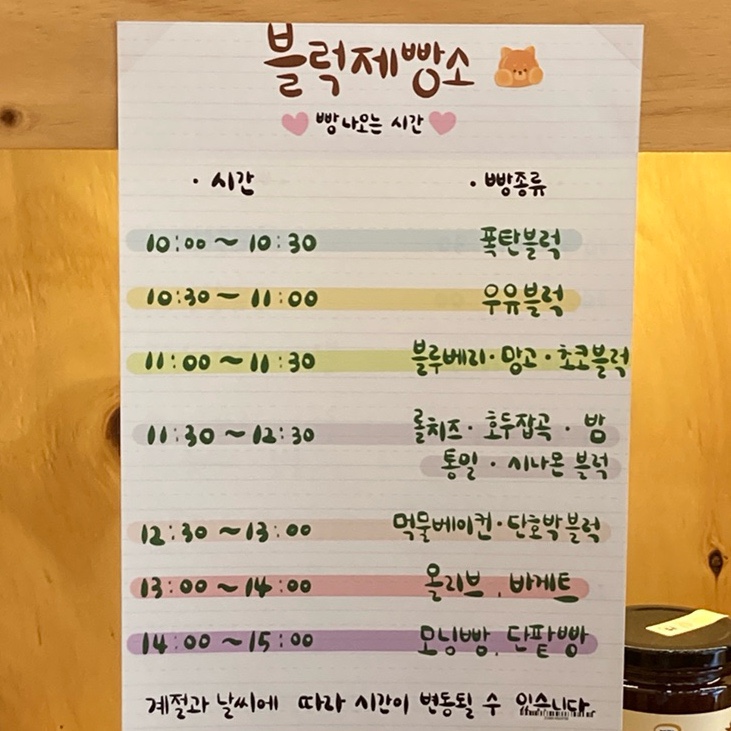 블럭제빵소
빵 나오는 시간
· 시간 · 빵종류
10:00 ~ 10:30 폭탄블럭
10:30 ~ 11:00 우유블럭
11:00 ~ 11:30 블루베리·망고·초코블럭
11:30 ~ 12:30 롤치즈· 호두잡곡 · 밤
통밀 · 시나몬 블럭
12:30 ~ 13:00 먹물베이컨·단호박블럭
13:00 ~ 14:00 올리브, 바게트
14:00 ~ 15:00 모닝빵, 단팥빵
계절과 날씨에 따라 시간이 변동될 수 있습니다.